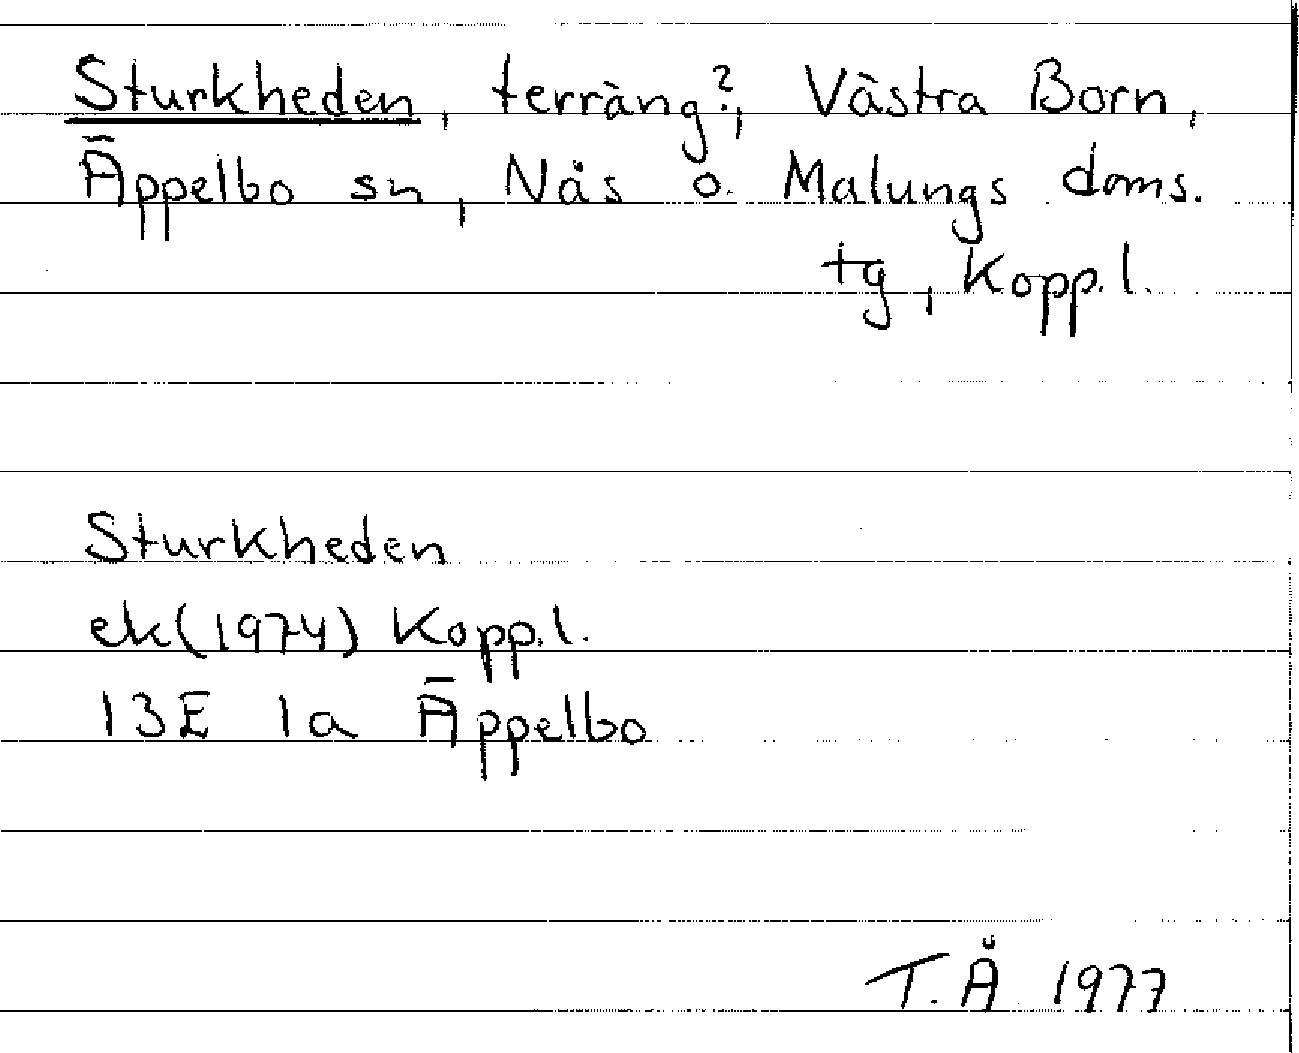 Sturkheden, terräng?, Västra Born,
Äppelbo sn, Nås o. Malungs doms.
tg, Kopp.l.
Sturkheden
ek(1974) Kopp.l.
13E 1a Äppelbo
T.Å 1977